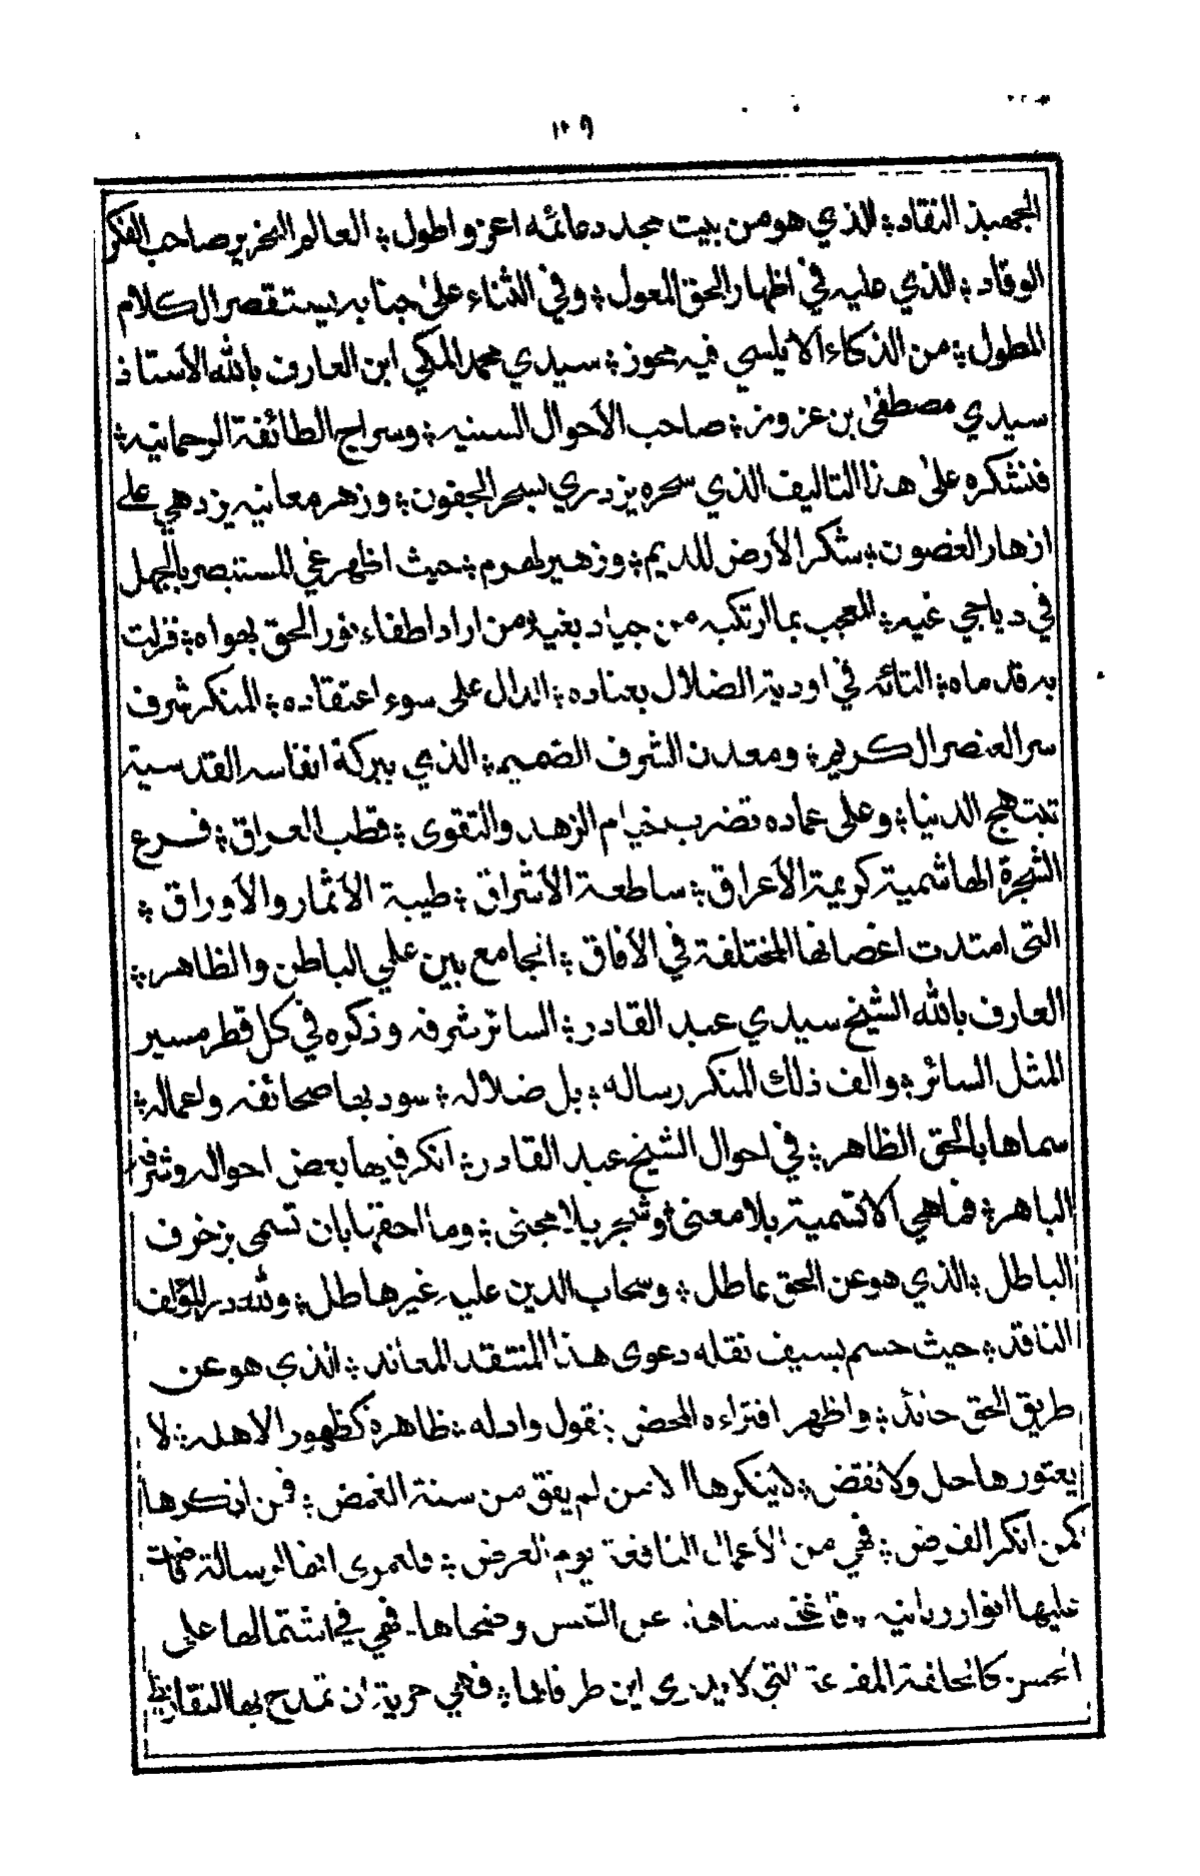 ١٢٩
الجهبذ النقاد ؛ الذي هو من بيت مجد دعائمه اعز واطول ؛ العالم النحرير صاحب الفكر
الوقاد ؛ الذي عليه في اظهار الحق المعول ؛ وفي الثناء على جنابه يستقصر الكلام
المطول ؛ من الذكاء الاياسي فيه محوز ؛ سيدي محمد المكي ابن العارف بالله الأستاذ
سيدي مصطفى بن عزوز ؛ صاحب الأحوال السنيه ؛ وسراج الطائفة الرحمانيه ؛
فنشكره على هذا التاليف الذي سحره يزدري بسحر الجفون ؛ وزهر معانيه يزدهي على
ازهار الغصون ؛ شكر الأرض للديم ؛ وزهير لهرم ؛ حيث اظهر غي المستبصر بالجهل
في دياجي غيه ؛ المعجب بما ارتكبه من جياد بغيه ؛ من اراد اطفاء نور الحق بهواه ؛ فزلت
به قدماه ؛ التائه في اودية الضلال بعناده ؛ الدال على سوء اعتقاده ؛ المنكر شرف
سر العنصر الكريم ؛ ومعدن الشرف الصميم ؛ الذي ببركة انفاسه القدسية
تبتهج الدنيا ؛ وعلى عماده تضرب خيام الزهد والتقوى ؛ قطب العراق ؛ فرع
الشجرة الهاشمية كريمة الأعراق ؛ ساطعة الأشراق ؛ طيبة الأثمار والأوراق ؛
التى امتدت اغصانها المختلفة في الأفاق ؛ الجامع بين علمي الباطن والظاهر ؛
العارف بالله الشيخ سيدي عبد القادر ؛ السائر شرفه وذكره في كل قطر مسير
المثل السائر ؛ والف ذلك المنكر رساله ؛ بل ضلاله ؛ سود بها صحائفه واعماله ؛
سماها بالحق الظاهر ؛ في احوال الشيخ عبد القادر ؛ انكر فيها بعض احواله وشرفه
الباهر ؛ فما هي الا تسمية بلا معنى ؛ وشجر بلا مجنى ؛ وما احقها بان تسمى بزخرف
الباطل ؛ الذي هو عن الحق عاطل ؛ وسحاب الدين عليه غير هاطل ؛ ولله در المؤلف
الناقد ؛ حيث حسم بسيف نقله دعوى هذا المنتقد المعاند ؛ الذي هو عن
طريق الحق حائد ؛ واظهر افتراءه المحض ؛ بقول وادله ؛ ظاهرة كظهور الاهله ؛ لا
يعتورها حل ولا نقض ؛ لا ينكرها الا من لم يفق من سنة الغمض ؛ فمن انكرها
كمن انكر الفرض ؛ فهي من الأعمال النافعة يوم العرض ؛ فلعمرى انها لرسالة فاضت
عليها انوار ربانيه ؛ سناها عن الشمس وضحاها ؛ فهي في اشتمالها على
الحسن كالحلقة المفرغة التي لا يدرى اين طرفاها ؛ فهي حرية ان تمدح بها التقاريظ